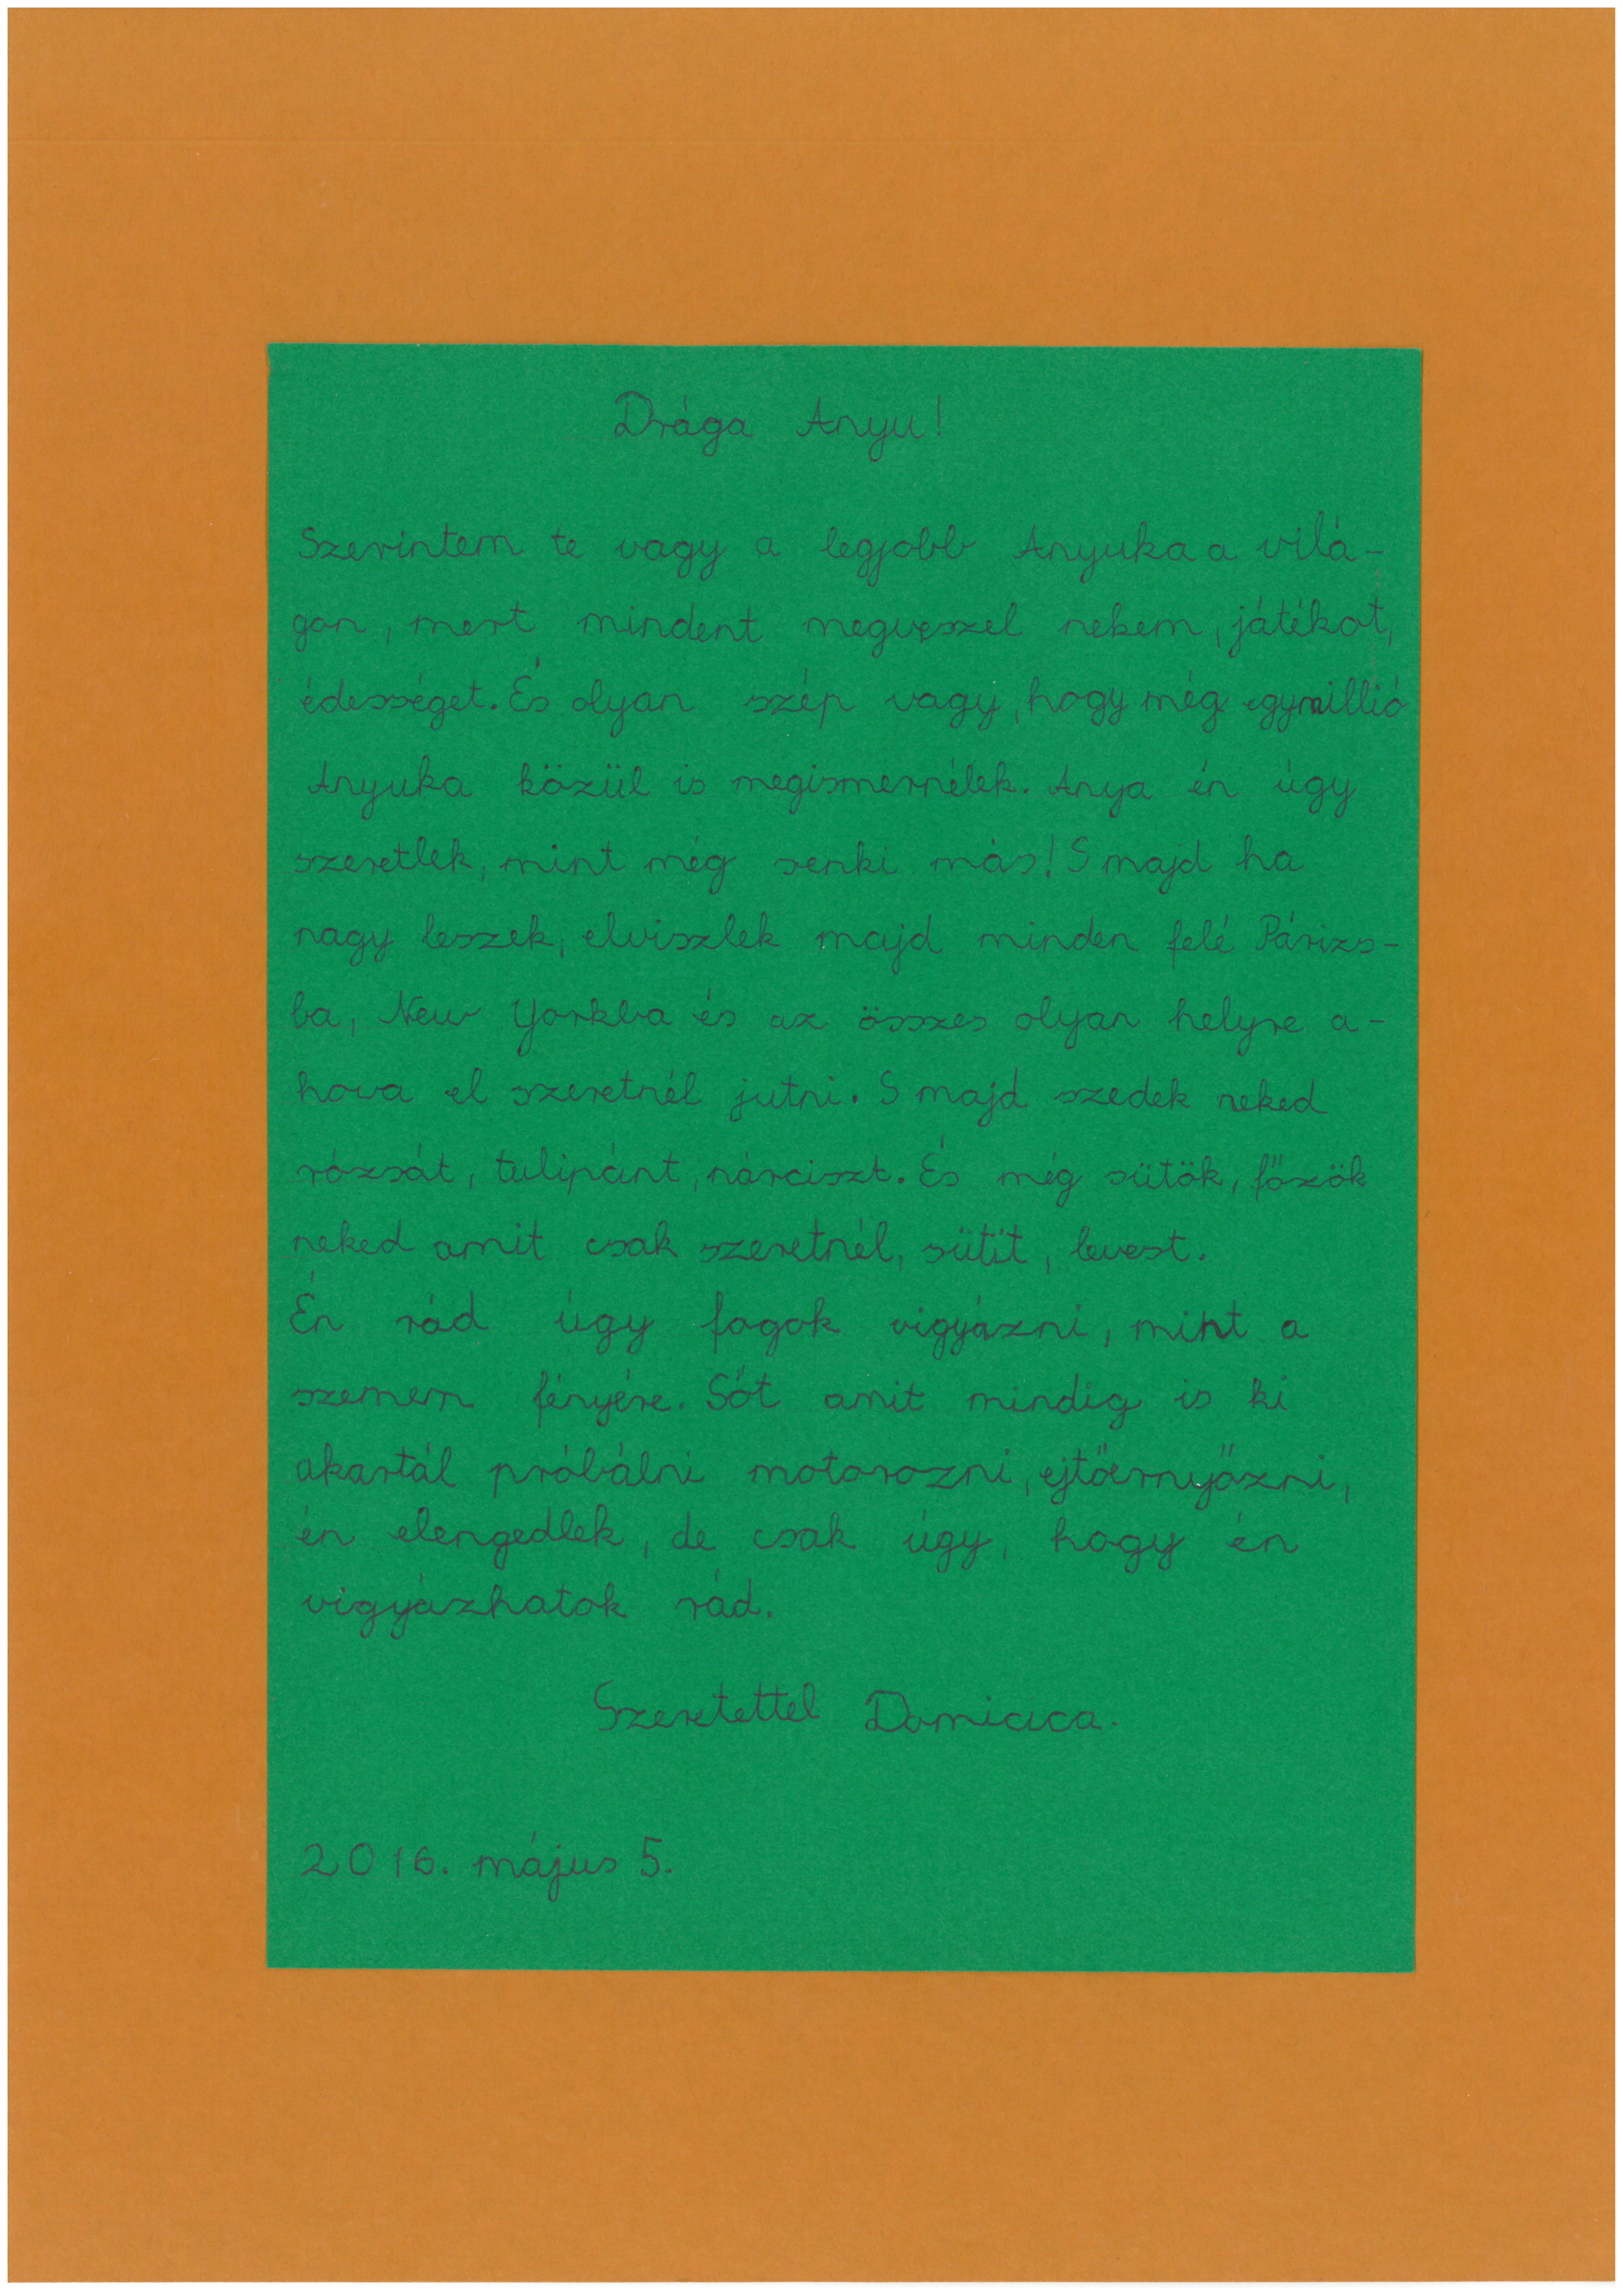 Drága Anyu!
Szerintem te vagy a legjobb Anyuka a vilá-
gon, mert mindent megveszel nekem, játékot,
édességet. És olyan szép vagy, hogy még egymillió
Anyuka közül is megismernélek. Anya én úgy
szeretlek, mint még senki más! S majd ha
nagy leszek, elviszlek majd minden felé Párizs-
ba, New Yorkba és az összes olyan helyre a-
hova el szeretnél jutni. S majd szedek neked
rózsát, tulipánt, nárciszt. És még sütök, főzök
neked amit csak szeretnél, sütit, levest.
Én rád úgy fogok vigyázni, mint a
szemem fényére. Sőt amit mindig is ki
akartál próbálni motorozni, ejtőernyőzni,
én elengedlek, de csak úgy, hogy én
vigyázhatok rád.
Szeretettel Domicica.
2016. május 5.